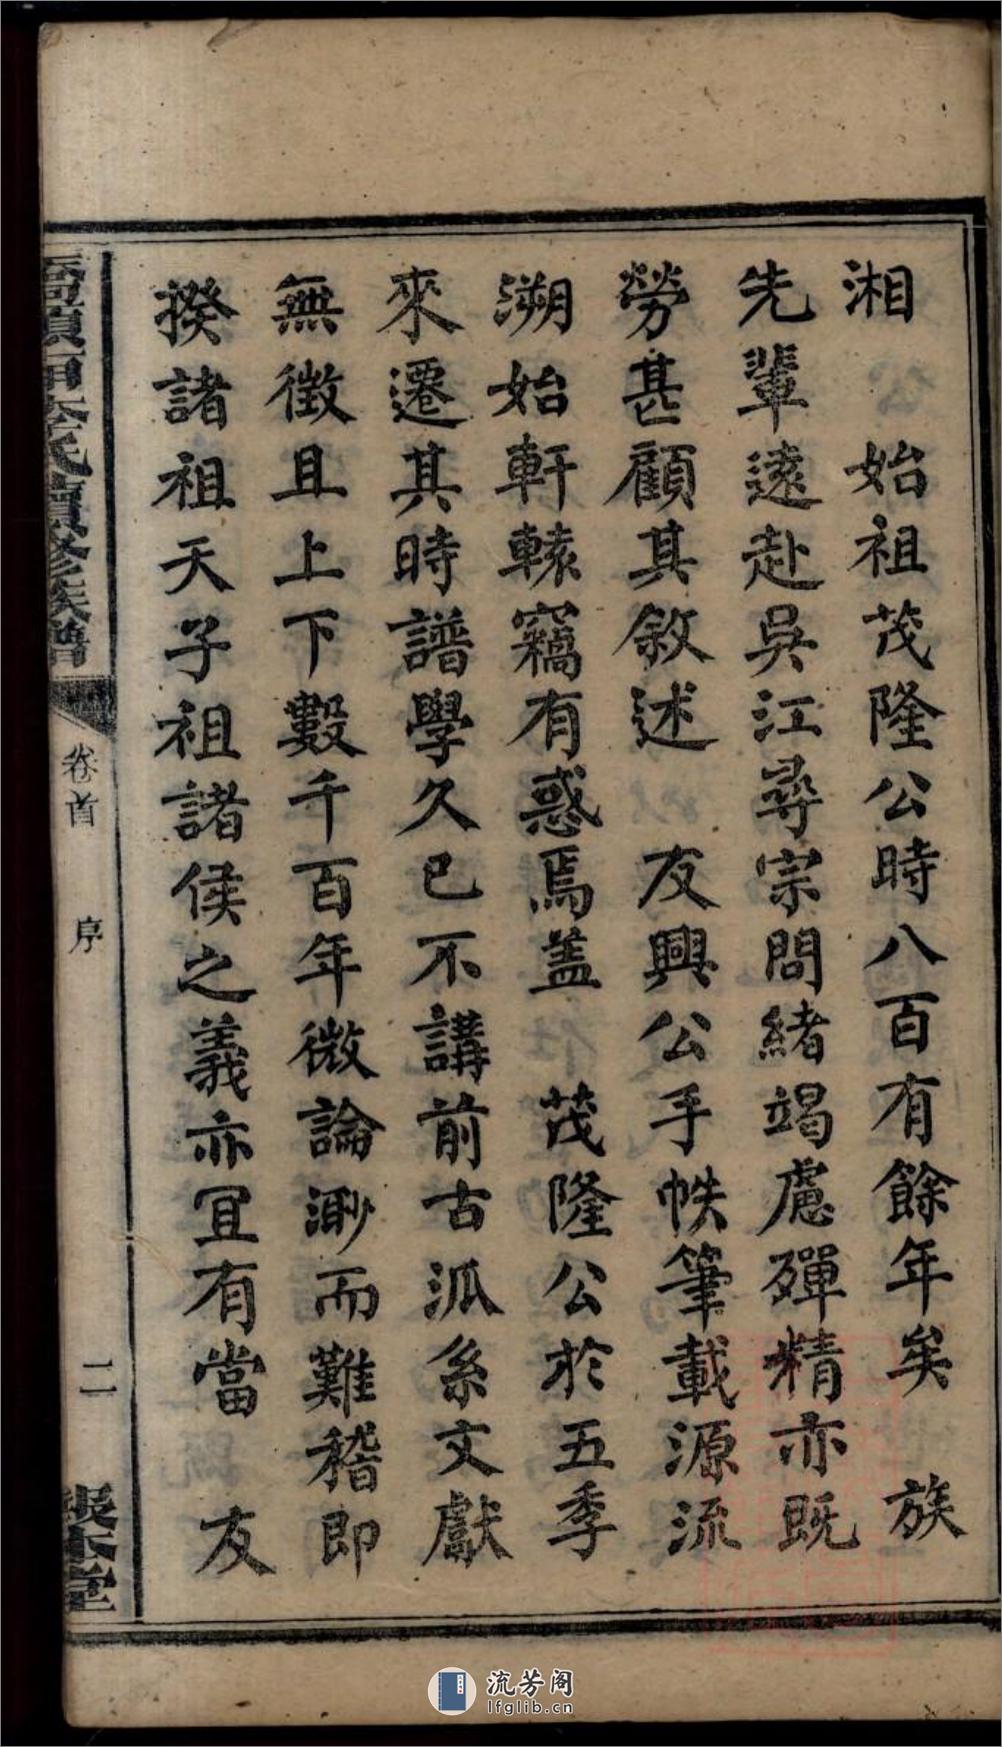 湘　始祖茂隆公時八百有餘年矣　族
先輩遠赴吳江尋宗問緒竭慮殫精亦既
勞甚顧其敘述　友興公手帙筆載源流
溯始軒轅竊有惑焉蓋　茂隆公於五季
來遷其時譜學久已不講前古派系文獻
無徵且上下數千百年微論渺而難稽即
揆諸祖天子祖諸侯之義亦宜有當　友
李氏續修族譜
卷首　序
二
報本堂
流芳阁
lfglib.cn